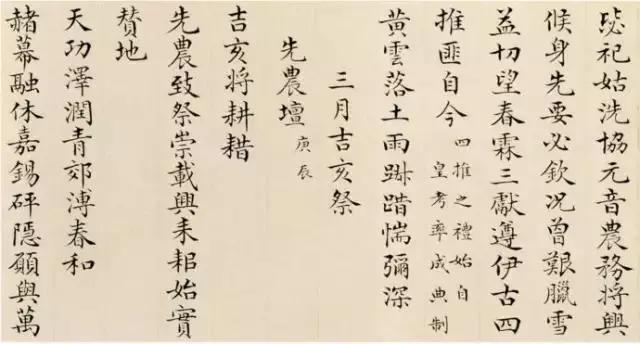 毖祀姑洗協元音農務将興
候身先要必欽况曾艱臘雪
益切望春霖三獻遵伊古四
推匪自今
四推之禮始自
皇考率成典制
黄雲落土雨踧踖惴彌深
三月吉亥祭
先農壇 庚辰
吉亥将耕耤
先農致祭崇載興耒耜始實
賛地
天功澤潤青郊溥春和
赭幕融休嘉錫砰隱願與萬